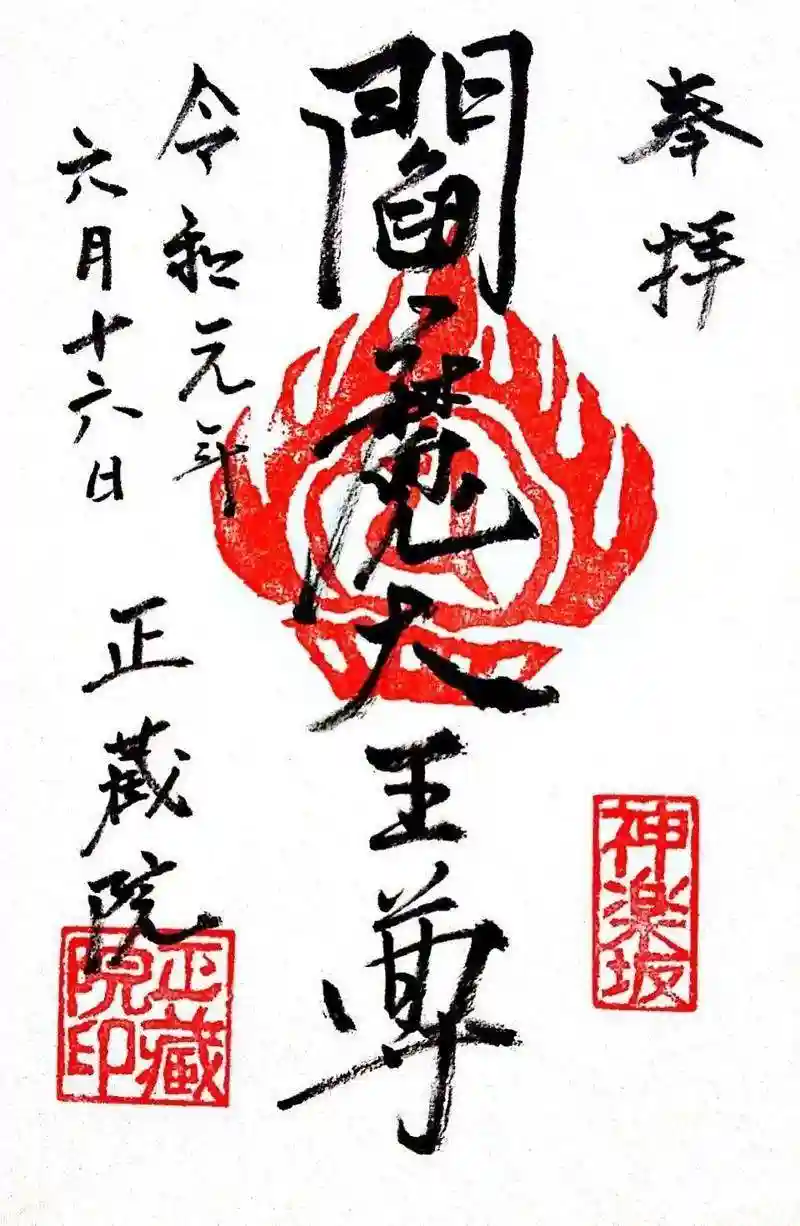 奉拝
神楽坂
閻魔大王尊
令和元年
六月十六日
正蔵院
正藏院印